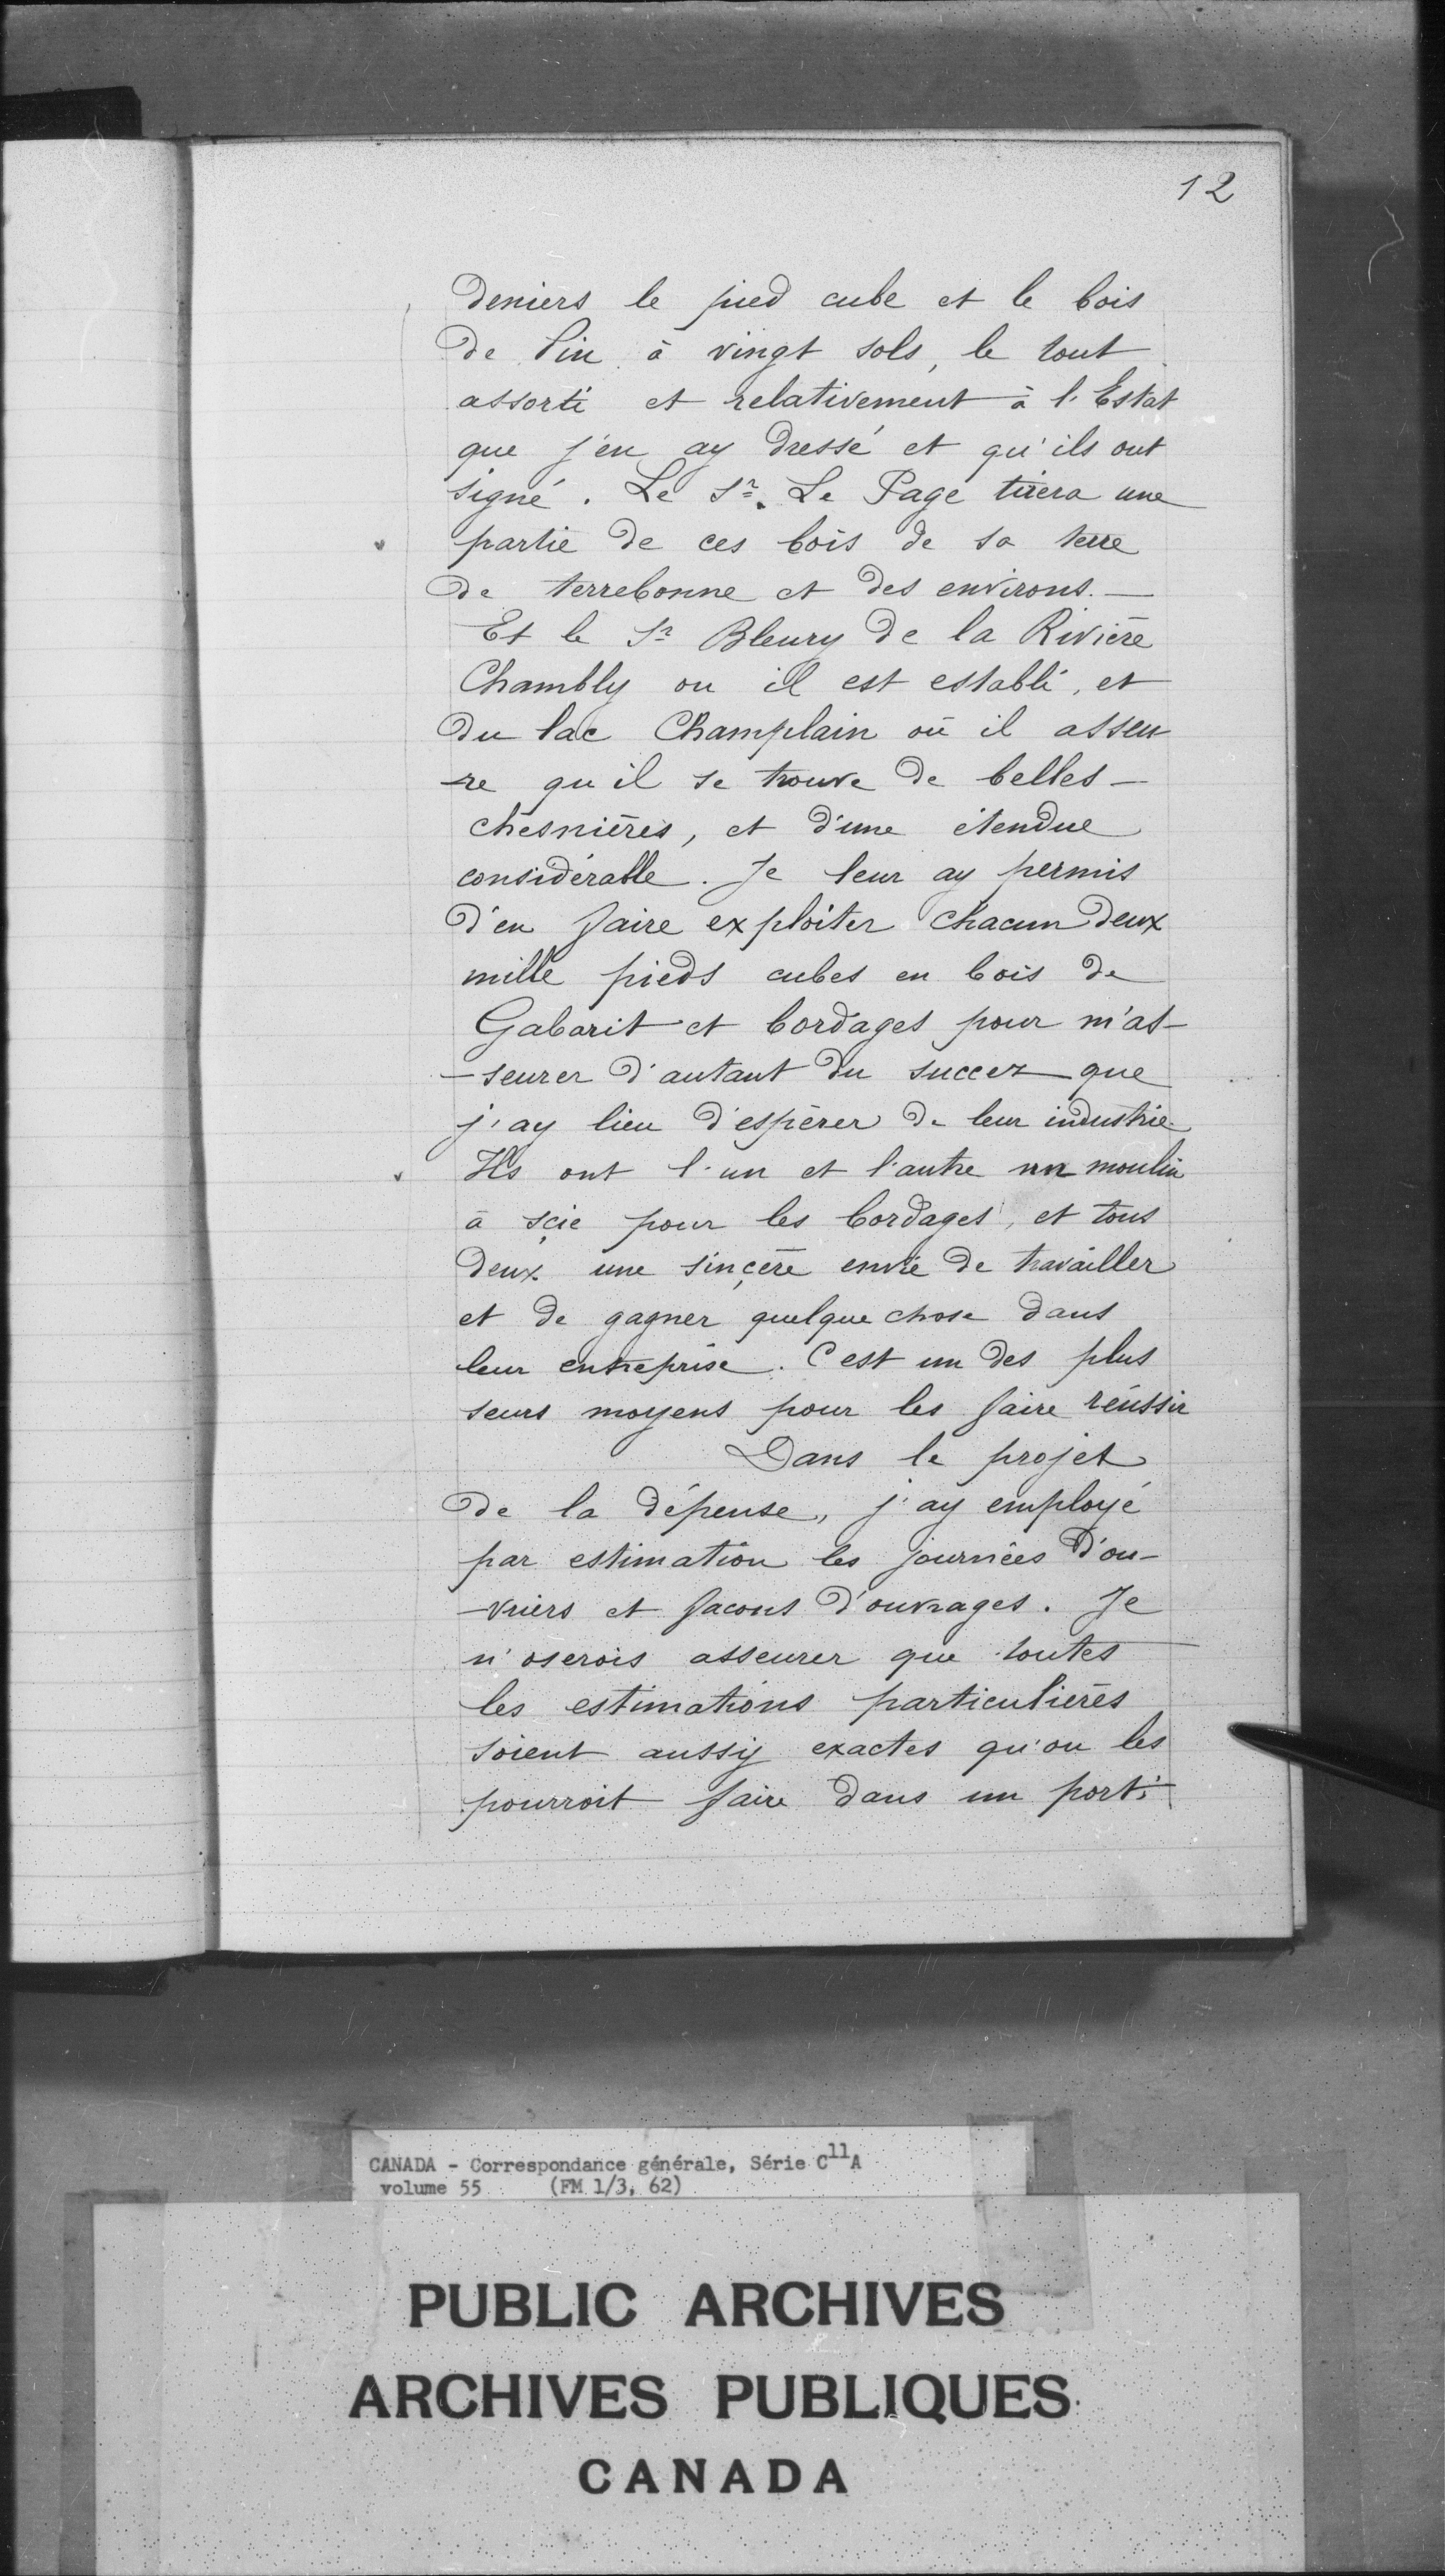 12
deniers le pied cube et le bois
de Pin à vingt sols, le tout
assorti et relativement à l'Estat
que j'en ay dressé et qu'ils ont
signé. Le Sr. Le Page tirera une
partie de ces bois de sa terre
de terrebonne et des environs. —
Et le Sr Bleury de la Rivière
Chambly ou il est establi, et
du lac Champlain où il asseu
-re qu'il se trouve de belles —
chesnières, et d'une étendue
considérable. Je leur ay permis
d'en faire exploiter chacun deux
mille pieds cubes en bois de
Gabarit et bordages pour m'as-
-seurer d'autant du succez que
j'ay lieu d'espérer de leur industrie
Ils ont l'un et l'autre un moulin
à scie pour les bordages, et tous
deux une sinçère envie de travailler
et de gagner quelque chose dans
leur entreprise. C'est un des plus
seurs moyens pour les faire réussir
Dans le projet
de la dépense, j'ay employé
par estimation les journées d'ou-
-vriers et facons d'ouvrages. Je
n'oserois asseurer que toutes
les estimations particulières
soient aussy exactes qu'on les
pourroit faire dans un port;
CANADA - Correspondance générale, Série C11A
volume 55 (FM 1/3, 62)
PUBLIC ARCHIVES
ARCHIVES PUBLIQUES
CANADA